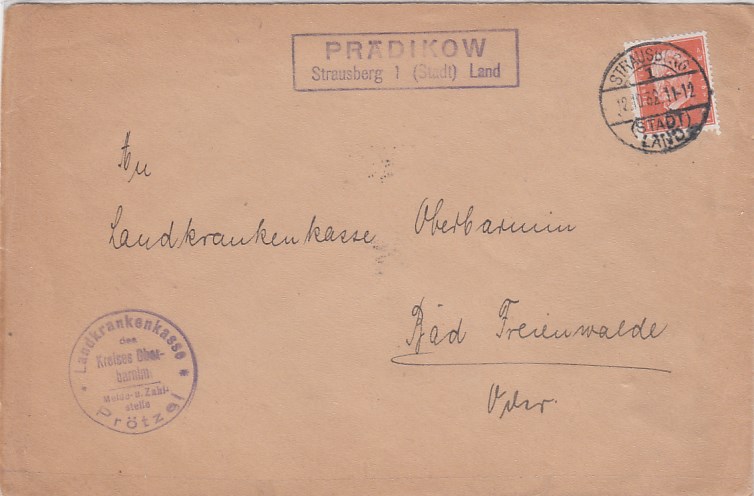 PRÄDIKOW
Strausberg 1 (Stadt) Land
STRAUSBERG
1
(STADT)
LAND
An
Landkrankenkasse Oberbarnim
Bad Freienwalde
Oder.
Landkrankenkasse
des
Kreises Ober-
barnim
Melde- u. Zahl-
stelle
Prötzel